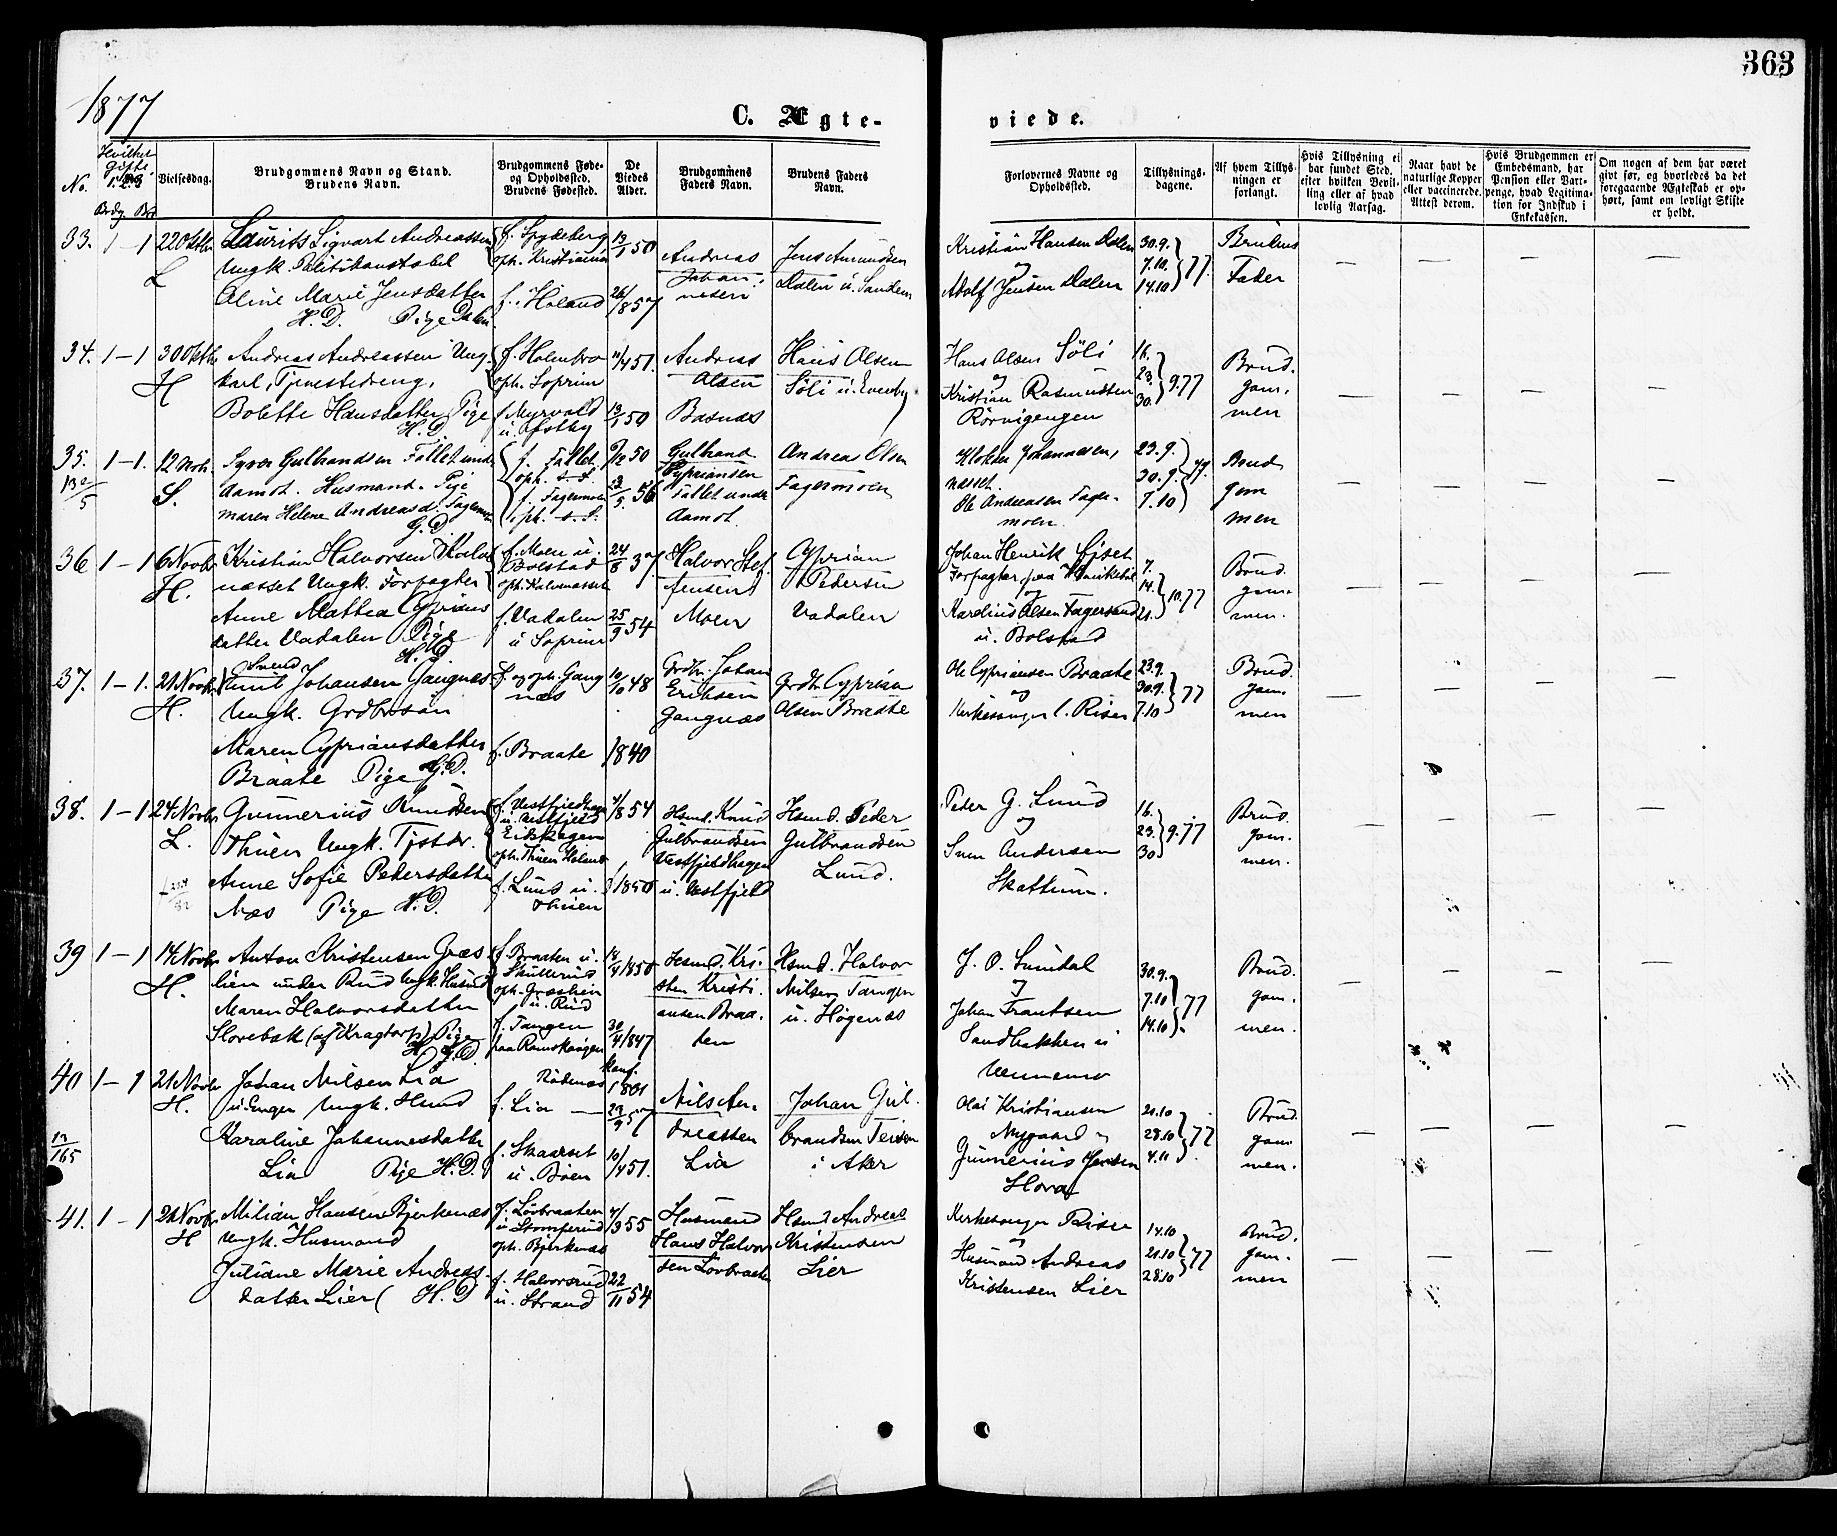 363
1877
C. Ægte-
viede.
No.
Hvilket Gifte. 1. 2. 3
Brdg. Br.
Vielsesdag.
Brudgommens Navn og Stand.
Brudens Navn.
Brudgommens Føde- og Opholdssted.
Brudens Fødested.
De Viedes Alder.
Brudgommens Faders Navn.
Brudens Faders Navn.
Forlovernes Navne og Opholdssted.
Tillysnings-dagene.
Af hvem Tillys-ningen er forlangt.
Hvis Tillysning ei har fundet Sted, efter hvilken Bevil-ling eller af hvad lovlig Aarsag.
Naar havt de naturlige Kopper eller vaccinerede. Attest derom.
Hvis Brudgommen er Embedsmand, har Pension eller Vart-penge, hvad Legitima-tion for Indskud i Enkekassen.
Om nogen af dem har været givt før, og hvorledes da det foregaaende Ægteskab er op-hørt, samt om lovligt Skifte er holdt.
33. 1 – 1 22 Oktbr L
Laurits Sigvart Andreassen
Ungk. Politikonstabel
Oline Marie Jensdatter
H. D. Pige Dalen
f. Spydeberg
oph. Kristiania
f. i Høland
13/1 50
26/8 57
Andreas
Johan-
nesen
Jens Amundsen
Dalen u. Sanden
Kristian Hansen Dalen
og
Adolf Jensen Dalen
30.9.
7.10.
14.10
77.
Brudens
Fader
34. 1 – 1 30 Oktbr H
Andreas Andreassen Ung-
karl, Tjenestedreng,
Bolette Hansdatter Pige
H. D.
f. Holenbro
oph. Soprim
f. Myrvold
u. Ofstby
11/4 51
13/1 50
Andreas
Olsen
Basnæs
Hans Olsen
Søli u. Evenby
Hans Olsen Søli
og
Kristian Rasmussen
Rørvigengen
16.
23.
30.
9.77
Brud-
gom-
men
35. 1 – 1. 12 Novb. S.
Syver Gulbrandsen Fallet under
Aamot. Husmand. Pige
Maren Helene Andreasd. Fagermoen
G. D.
f. Fallet
oph. d. S.
f. Fagermoen
oph. d. S.
50
23/5 56
Gulbrand
Cypriansen
Fallet under
Aamot.
Andreas Olsen
Fagermoen
Klokker Johannesen,
Næsset.
Ole Andreasen Fager-
moen.
23.9.
30.9.
7.10
77.
Brud
gom
men
36 1 – 1 6 Novbr H.
Kristian Halvorsen Kals-
næsset Ungk. Forpagter
Anne Mathea Cyprians
datter Vadalen Pige
H. D.
f. Moen u.
Bolstad
oph. Kalsnæsset
f. Vadalen
u. Soprim
24/8 37
25/9 54
Halvor Stef
fensen
Moen
Cyprian
Pedersen
Vadalen
Johan Henrik Eiset
Forpagter paa
og
Karelius Olsen Fagersand
u. Bolstad
7.
14.
21.
10.77
Brud-
gom-
men.
37. 1 – 1. 21 Novbr H.
Svend
Emil Johansen Gangnæs
Ungk. Grdbrsøn
Maren Cypriansdatter
Braate Pige G. D.
f. og oph. Gang
næs
f. Braate
10/10 48
1840
Grdbr. Johan
Eriksen
Gangnæs
Grdbr. Cyprian
Olsen Braate
Ole Cypriansen Braate
og
Kirkesanger C. Riser
23.9.
30.9.
7.10
77
Brud-
gom-
men
38. 1 – 1 24 Novbr L.
Gunnerius Knudsen
Thuen Ungk. Tjstdr.
Anne Sofie Pedersdatter
Næs Pige H. D.
f. Vestfjeldhagen
u. Vestfjeld
Eidskogen
oph. Thuen Høland
f. Lund u.
Thuen
8 54
1850
Hsmd. Knud
Gulbrandsen
Vestfjeldhagen
u. Vestfjeld
Hsmd. Peder
Gulbrandsen
Lund.
Peder G. Lund
og
Sven Andersen
Skattum.
16.
23.
30
9.77
Brud-
gom-
men.
39 1 – 1 14 Novbr H.
Anton Kristensen Græs
lien under Rud Ungk. Husmd
Maren Halvorsdatter
Slorebak (af Kragtorp) Pige
H. D.
f. Braaten u.
Skullerud
oph. Græslien
u. Rud
f. Tangen
paa Romskogen
14/4 1850
30/4 1847
Hsmd. Kri-
sten Kristi-
ansen Braa-
ten
Hsmd. Halvor
Nilsen Tangen
u. Høgenæs
J. O. Sundal
og
Johan Frantsen
Sandbakken u
30.9.
7.10
14.10
77
Brud-
gom-
men.
40 1 – 1 21 Novbr H.
Johan Nilsen Lia
u. Engen Ungk. Husmd
Karoline Johannesdatter
Lia Pige H. D.
Rødenæs
f. Lia
f. Skaarset
u. Bøen
10/4 51.
Nils An-
dreassen
Lia
Johan Gul-
brandsen Teisen
i Aker
Olai Kristiansen
Nygaard og
Gunnerius Jensen
Hora
21.10
28.10
4.11
77
Brud-
gom
men.
17/165
41. 1 – 1 21 Novbr H
Milian Hansen Bjerkenæs
Ungk. Husmand
Juliane Marie Andreas-
datter Lier H. D
f. Løvbraaten
u. Stomperud
oph. Bjerkenæs
f. Halvorsrud
u. Strand
4/3 55
22/11 54
Husmand
Hans Halvor
sen Løvbraaten
Hsmd Andreas
Kristensen
Lier
Kirkesanger Riser
og
Husmand Andreas
Kristensen Lier
14.10
21.10
28.10
77
Brud-
gom-
men